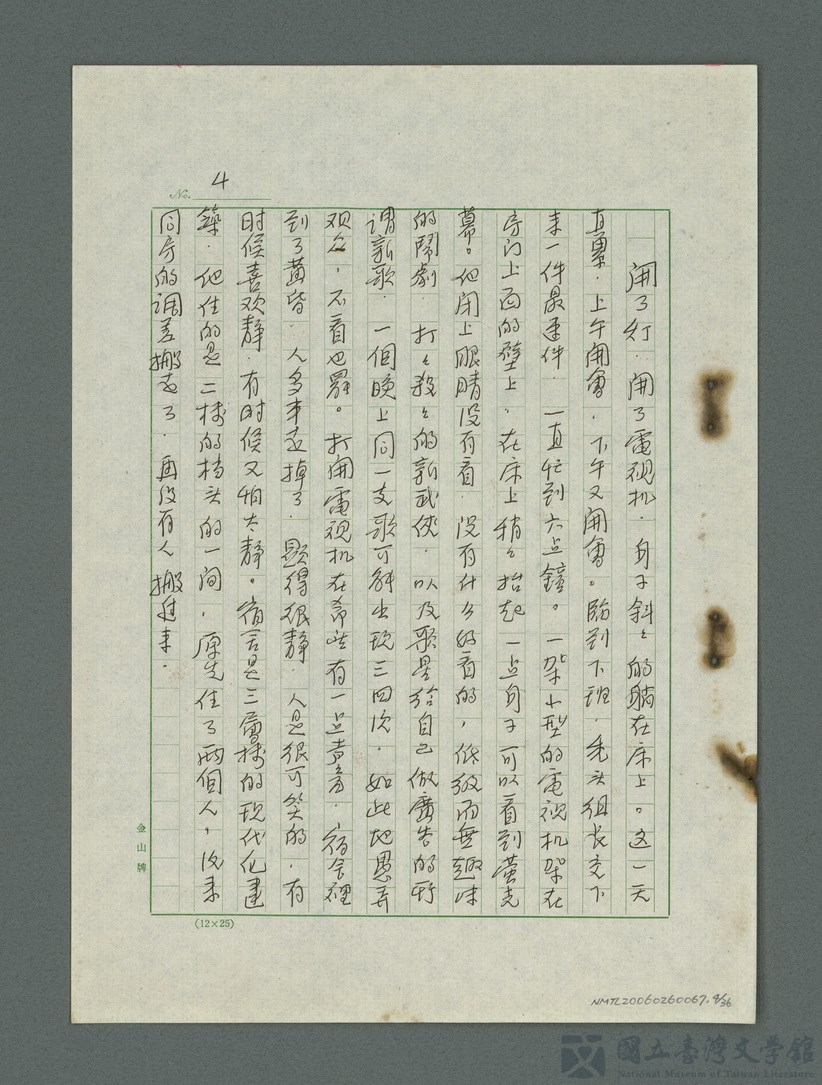 No. 4
開了灯．開了電視机．身子斜々的躺在床上。这一天
真累．上午開會，下午又開會。臨到下班．禿头组长交下
来一件最速件．一直忙到六点鐘。一架小型的電視机架在
房门上面的壁上，在床上稍々抬起一点身子可以看到螢光
幕。他闭上眼睛没有看．没有什么好看的，低级而無趣味
的鬧劇．打々殺々的新武俠．以及歌星给自己做廣告的所
謂新歌．一個晚上同一支歌可能出现三四次．如此地愚弄
观众，不看也罷。打開電視机在希望有一点声音．宿舍裡
到了黄昏．人多半走掉了．顯得很静．人是很可笑的．有
时候喜欢静．有时候又怕太静。宿舍是三層楼的现代化建
築．他住的是二楼的档头的一间，原先住了兩個人，後来
同房的调差搬走了．再没有人搬进来．
金山牌
(12×25)
NMTL20060260067.4/36
國立臺灣文學館
National Museum of Taiwan Literature